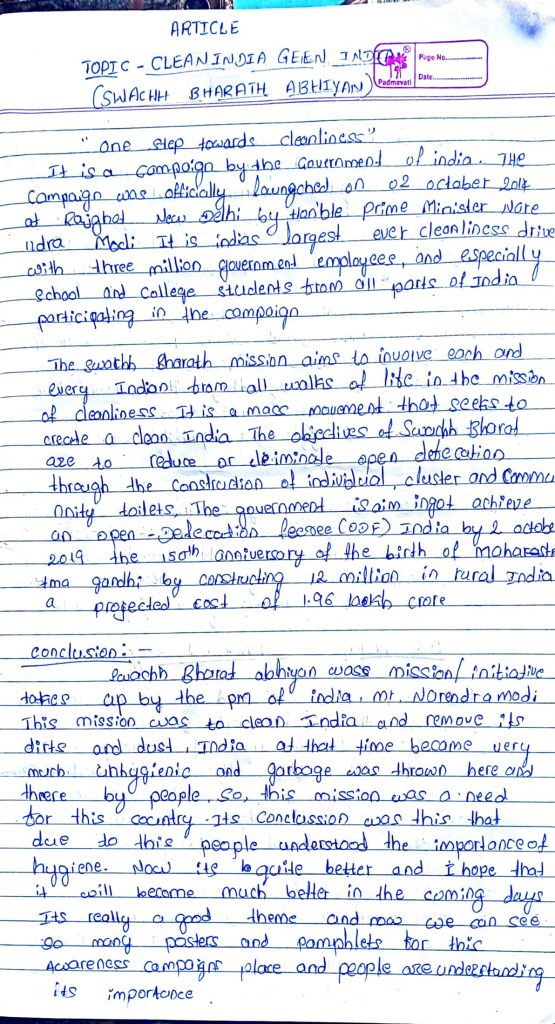 ARTICLE
TOPIC - CLEAN INDIA GEEN INDIA
(SWACHH BHARATH ABHIYAN)
Padmavati
Page No.
Date
"One step towards cleanliness"
It is a campaign by the Government of india. THe
Campaign was officially laungched on 02 october 2014
at Rajghat New Delhi by Hon'ble Prime Minister Nare
ndra Modi It is indias largest ever cleanliness drive
with three million government employees, and especially
school and College students from all parts of India
participating in the campaign
The swachh Bharath mission aims to involve each and
every Indian from all walks of life in the mission
of cleanliness. It is a mass movement that seeks to
create a clean India The objectives of Swachh Bharat
are to reduce or eliminate open defecation
through the construction of individual, cluster and Commu
nnity toilets, The government is aim ingot achieve
an open - Defecation (ODF) India by 2 octobe
2019 the 150th anniversary of the birth of
tma gandhi by constructing 12 million in rural India
a projected cost of 1.96 lackh crore
conclusion: -
Swachh Bharat abhiyan wass mission/initiative
takes up by the pm of india, mr. Narendra modi
This mission was to clean India and remove its
dirts and dust, India at that time become very
much unhygienic and garbage was thrown here and
threre by people. So, this mission was a need
for this country. Its Conclussion was this that
due to this people understood the importance of
hygiene. Now its quite better and I hope that
it will become much better in the coming days
Its really a good theme and now we can see
so many posters and pamphlets for this
Awareness campaigns place and people are understanding
its importance